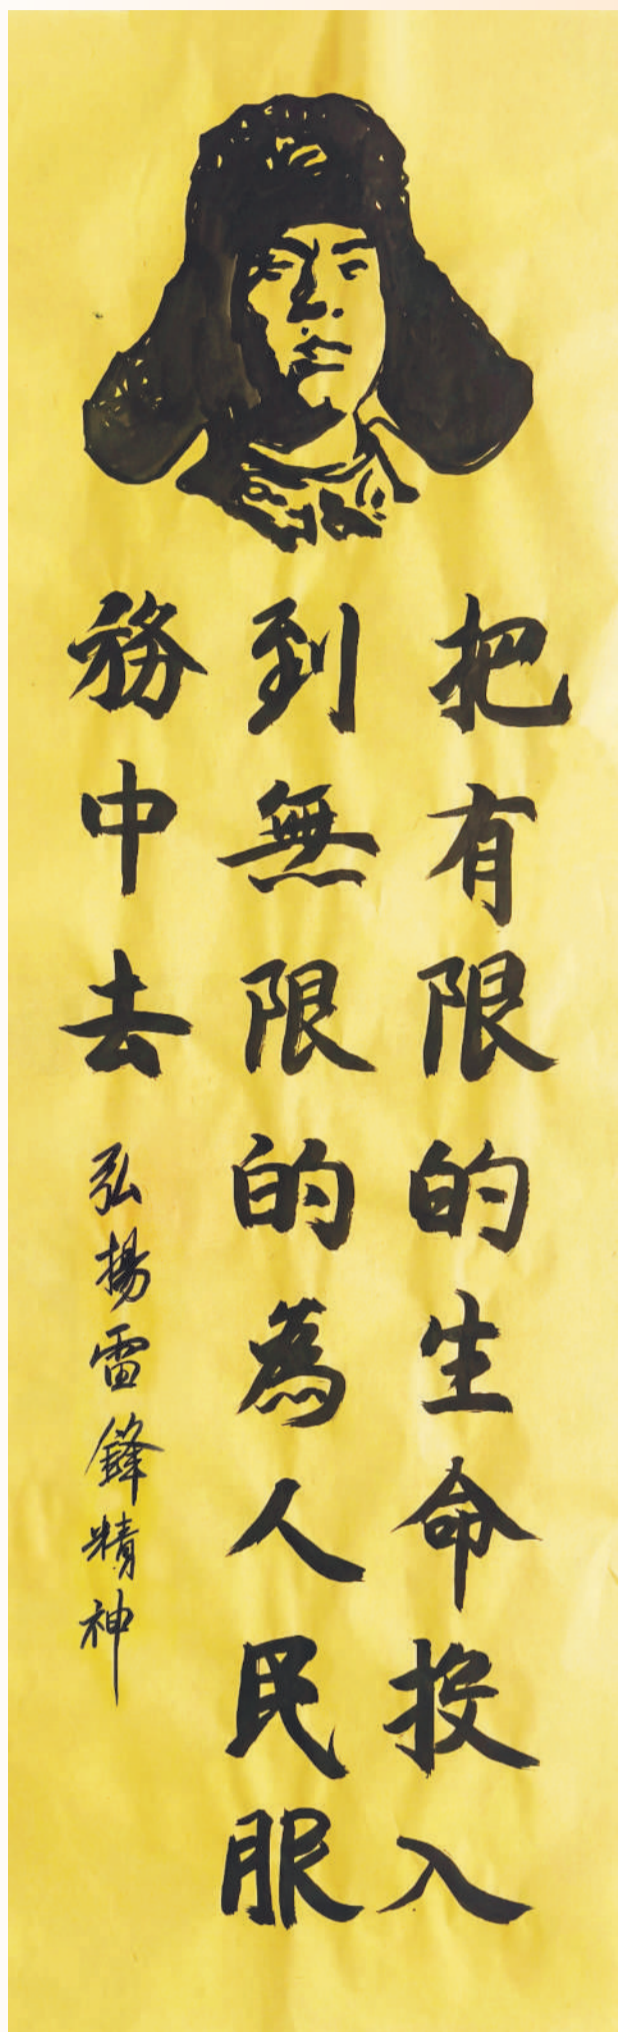 把有限的生命投入
到無限的為人民服
務中去
弘揚雷鋒精神